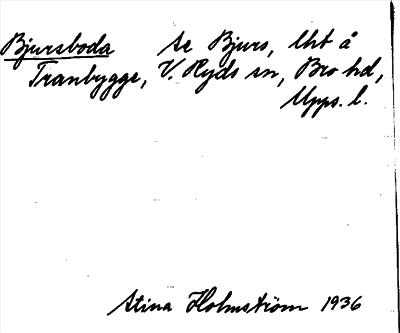 Bjursboda se Bjurs, lht å
Tranbygge, V. Ryds sn, Bro hd,
Upps. l.
Stina Holmström 1936